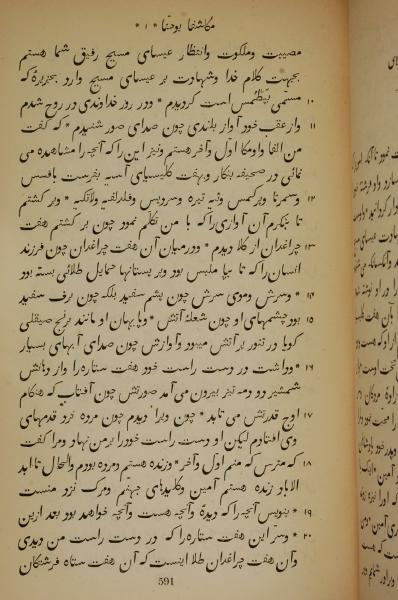 مکاشفا یوحنا * ۱ *
مصیبت وملکوت وانتظار عیسای مسیح رفیق شما هستم
بجهت کلام خدا وشهادت بر عیسای مسیح وارد بجزیرهٔ که
۱۰ مسمّی بپطمس است گردیدم * ودر روز خداوندی در روح شدم
۱۱ واز عقب خود آواز بلندی چون صدای صور شنیدم * که گفت
من الفا واومکا اوّل وآخر هستم ونیز این را که آنچه را مشاهده می
نمائی در صحیفه بنکار وبهفت کلیسیای آسیه بفرست بافسس
۱۲ وسمرنا وپرکمس وثیه تیره وسردیس وفلدلفیه ولاتکیه * وبر کشتم
تا بنکرم آن آوازی را که با من تکلّم نمود چون بر کشتم هفت
۱۳ چراغدان از طلا دیدم * ودر میان آن هفت چراغدان چون فرزند
انسان را که تا بپا ملبس بود وبر پستانها حمایل طلائی بسته بود
۱۴ * وسرش وموی سرش چون پشم سفید بلکه چون برف سفید
۱۵ بود چشمهای او چون شعلهٔ آتش * وپایهای او مانند برنج صیقلی
کویا در تنور بر آتش میبود وآوازش چون صدای آبهای بسیار
۱۶ * وداشت در دست راست خود هفت ستاره را واز دهانش
شمشیر دو دمه تیز بیرون می آمد صورتش چون آفتاب که هنکام
۱۷ اوج قدرتش می تابد * چون ویرا دیدم چون مرده نزد قدمهای
وی افتادم لیکن او دست راست خود را بر من نهاد ومرا کفت
۱۸ که مترس که منم اوّل وآخر * وزنده هستم ومرده بودم والحال تا ابد
الاباد زنده هستم آمین وکلیدهای جهنّم ومرک نزد منست
۱۹ * بنویس آنچه را که دیدهٔ وآنچه هست وآنچه خواهد بود بعد ازین
۲۰ * وسرّ این هفت ستاره را که در دست راست من دیدی
وآن هفت چراغدان طلا اینست که آن هفت ستاره فرشتکان
591